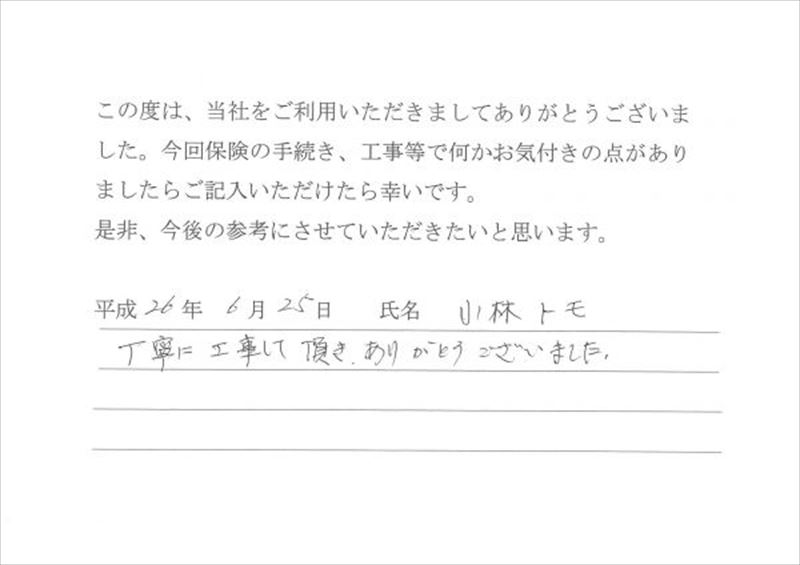 この度は、当社をご利用いただきましてありがとうございま
した。今回保険の手続き、工事等で何かお気付きの点があり
ましたらご記入いただけたら幸いです。
是非、今後の参考にさせていただきたいと思います。
平成 26 年 6 月 25 日 氏名 小林トモ
丁寧に工事して頂き、ありがとうございました。